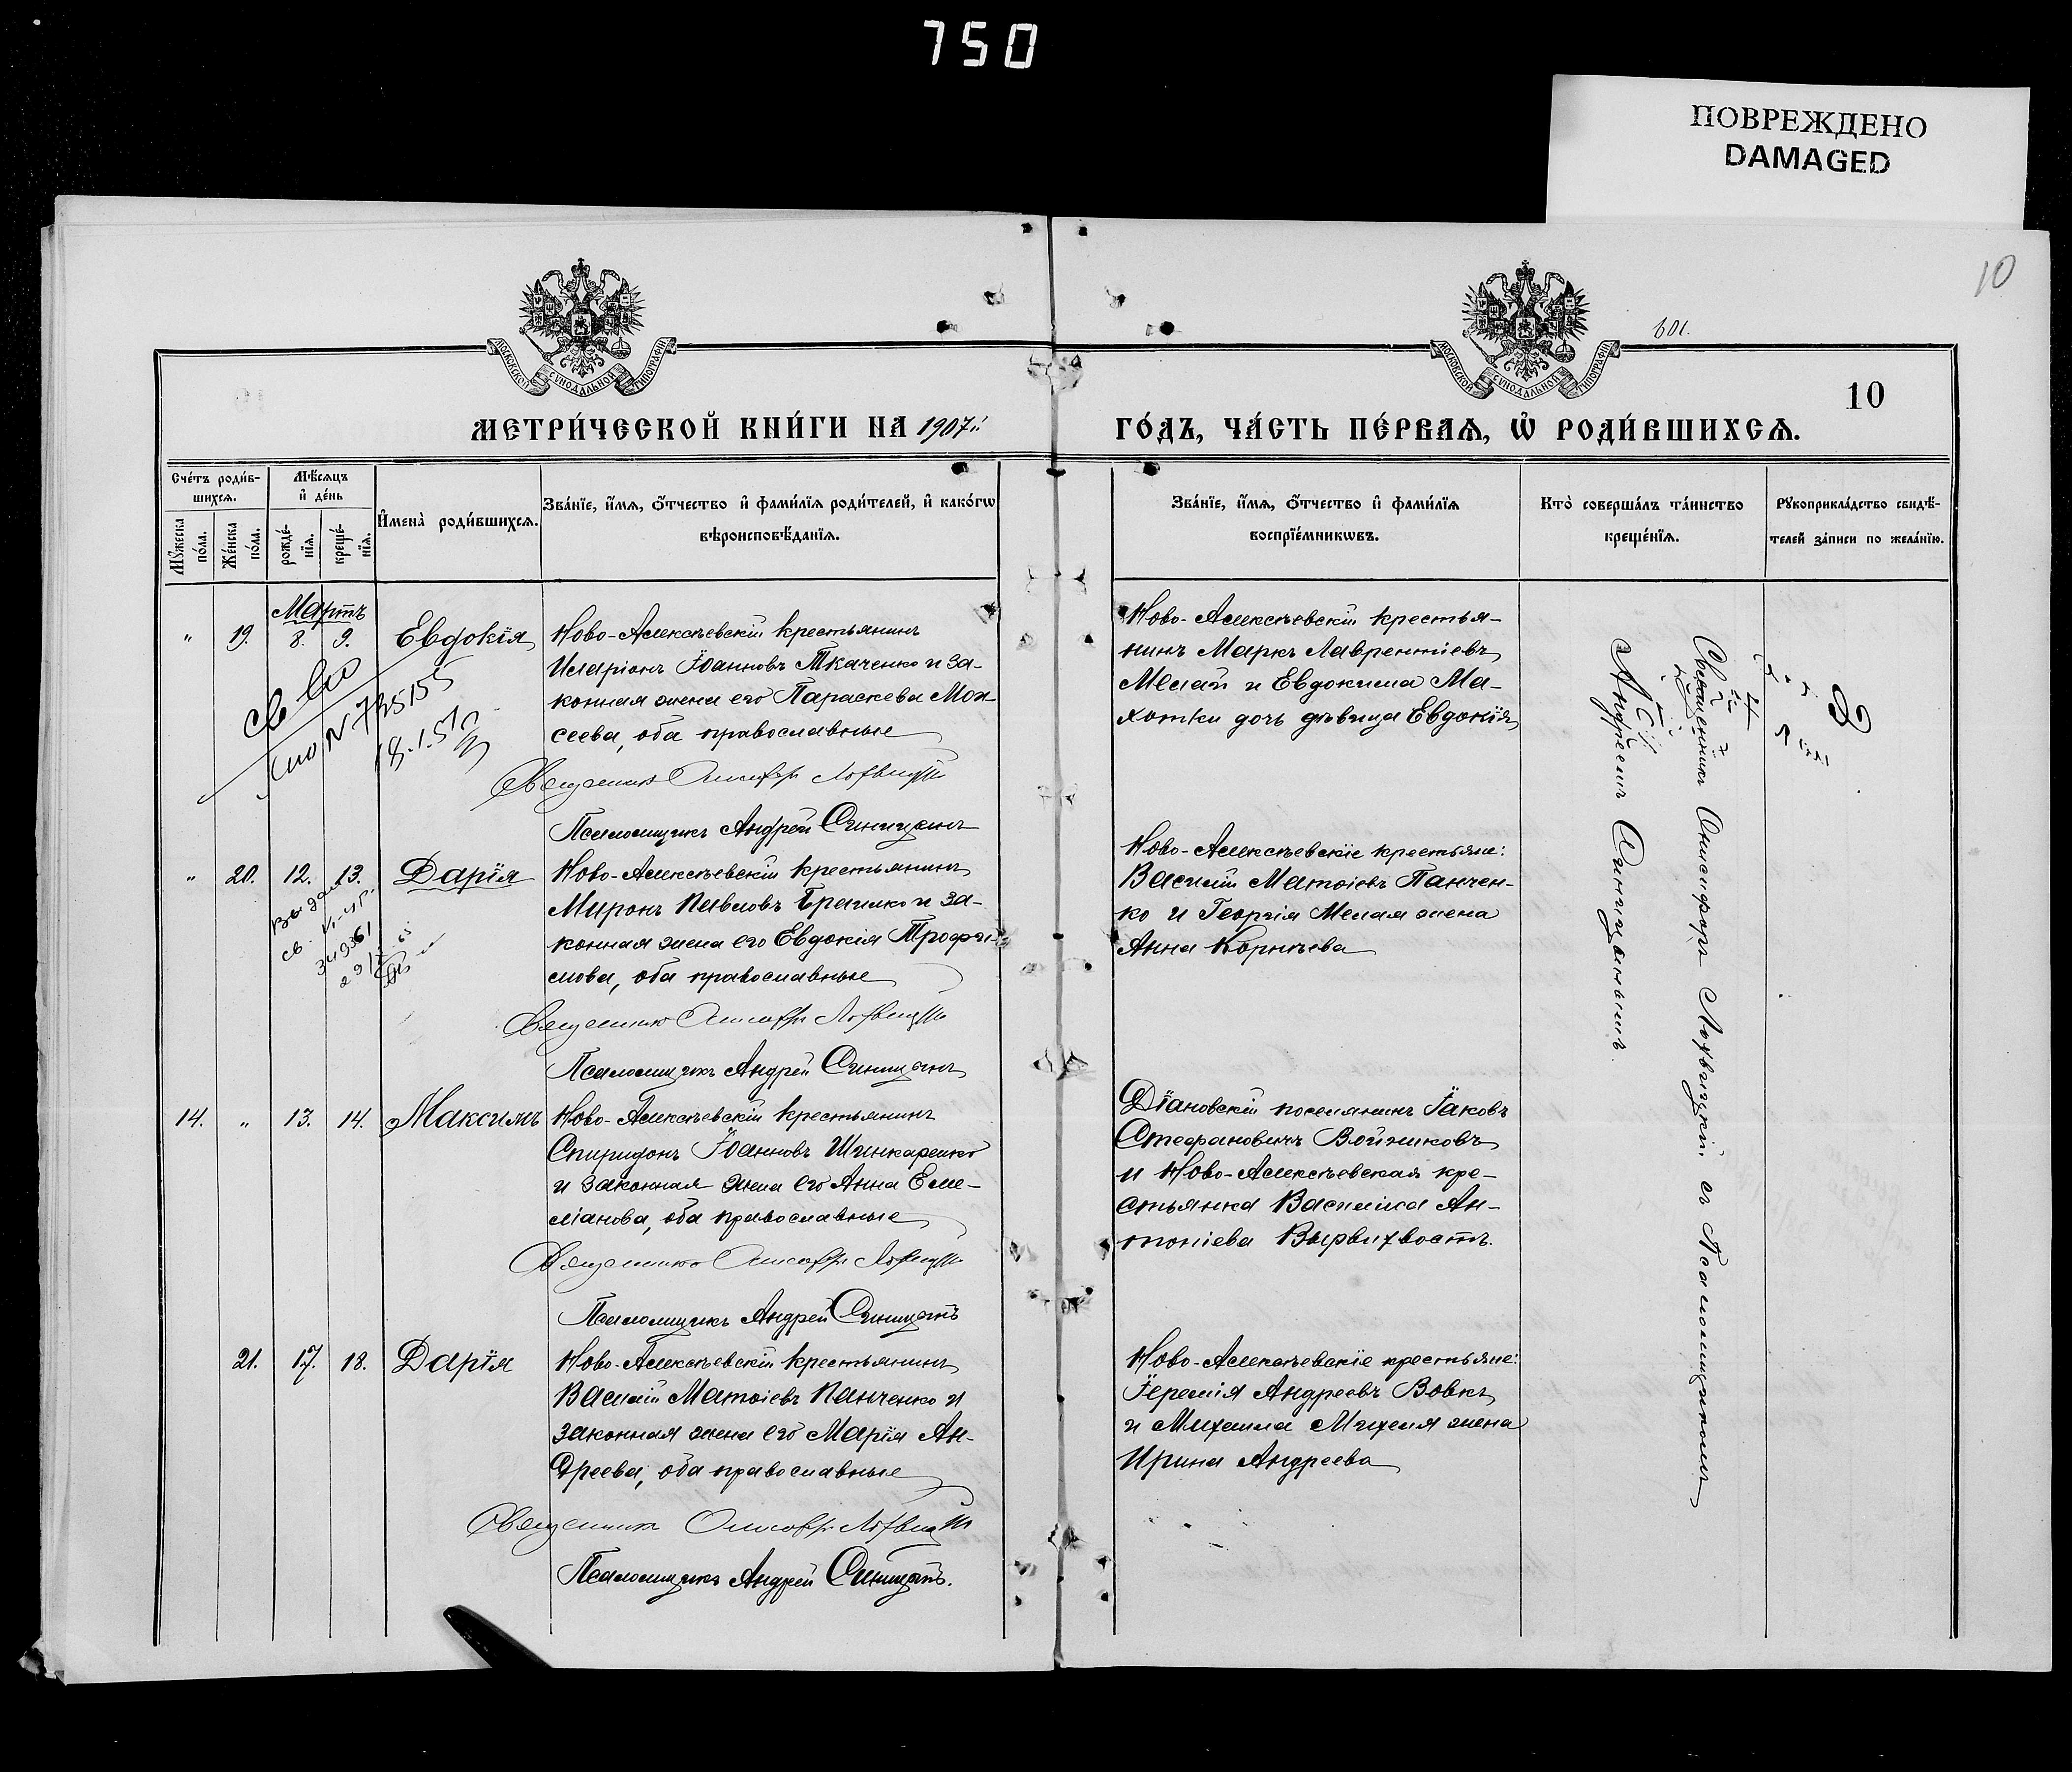 750
ПОВРЕЖДЕНО
DAMAGED
10
601.
10
МОСКОВСКОЙ СѴНОДАЛЬНОЙ ТИПОГРАФІИ
МОСКОВСКОЙ СѴНОДАЛЬНОЙ ТИПОГРАФІИ
МЕТРИ́ЧЕСКОЙ КНИ́ГИ НА 1907й
ГО́ДЪ, ЧА́СТЬ ПЕ́РВАѦ, Ѡ҆ РОДИ́ВШИХСѦ.
Сче́тъ роди́в-
шихсѧ.
Мꙋ́жеска по́ла.
Же́нска по́ла.
Мѣ́сѧцъ
и҆ де́нь
рожде́-
нїѧ.
креще́-
нїѧ.
И҆мена̀ роди́вшихсѧ.
Зва́нїе, и҆́мѧ, ѻ҆́тчество и҆ фами́лїѧ роди́телей, и҆ како́гѡ
вѣроисповѣ́данїѧ.
Зва́нїе, и҆́мѧ, ѻ҆́тчество и҆ фами́лїѧ
воспрїе́мникѡвъ.
Кто̀ соверша́лъ та́инство
креще́нїѧ.
Рꙋкоприкла́дство свидѣ́-
телей за́писи по жела́нїю.
Мартъ
" 19. 8. 9. Евдокія
Ново-Алексѣевскій крестьянинъ
Иларіонъ Іоанновъ Ткаченко и за-
конная жена его Параскева Мои-
сеева, оба православные
Священникъ Онисифоръ Лохвицкій
Псаломщикъ Андрей Синицынъ
N 735155
18.1.51
Ново-Алексѣевскій крестья-
нинъ Маркъ Лаврентіевъ
Мелай и Евдокима Ма-
хотки дочь дѣвица Евдокія
" 20. 12. 13. Дарія
Выдан
св.
349361
Ново-Алексѣевскій крестьянинъ
Миронъ Павловъ Ераилко и за-
конная жена его Евдокія Трофи-
мова, оба православные
Священникъ Онисифоръ Лохвицкій
Псаломщикъ Андрей Синицынъ
Ново-Алексѣевскіе крестьяне:
Василій Матѳіевъ Панчен-
ко и Георгія Мелая жена
Анна Корнѣева
14. " 13. 14. Максимъ
Ново-Алексѣевскій крестьянинъ
Спиридонъ Іоанновъ Шинкаренко
и законная жена его Анна Еме-
ліанова, оба православные
Священникъ Онисифоръ Лохвицкій
Псаломщикъ Андрей Синицынъ
Діановскій поселянинъ Іаковъ
Стефановичъ Войниковъ
и Ново-Алексѣевская кре-
стьянка Василиса Ан-
тоніева Вырвихвостъ.
21. 17. 18. Дарія
Ново-Алексѣевскій крестьянинъ
Василій Матѳіевъ Панченко и
законная жена его Марія Ан-
дреева, оба православные
Священникъ Онисифоръ Лохвицкій
Псаломщикъ Андрей Синицынъ.
Ново-Алексѣевскіе крестьяне:
Іеремія Андреевъ Вовкъ
и Михаила Михеля жена
Ирина Андреева
Священникъ Онисифоръ Лохвицкій съ Псаломщикомъ
Андреемъ Синицынымъ.